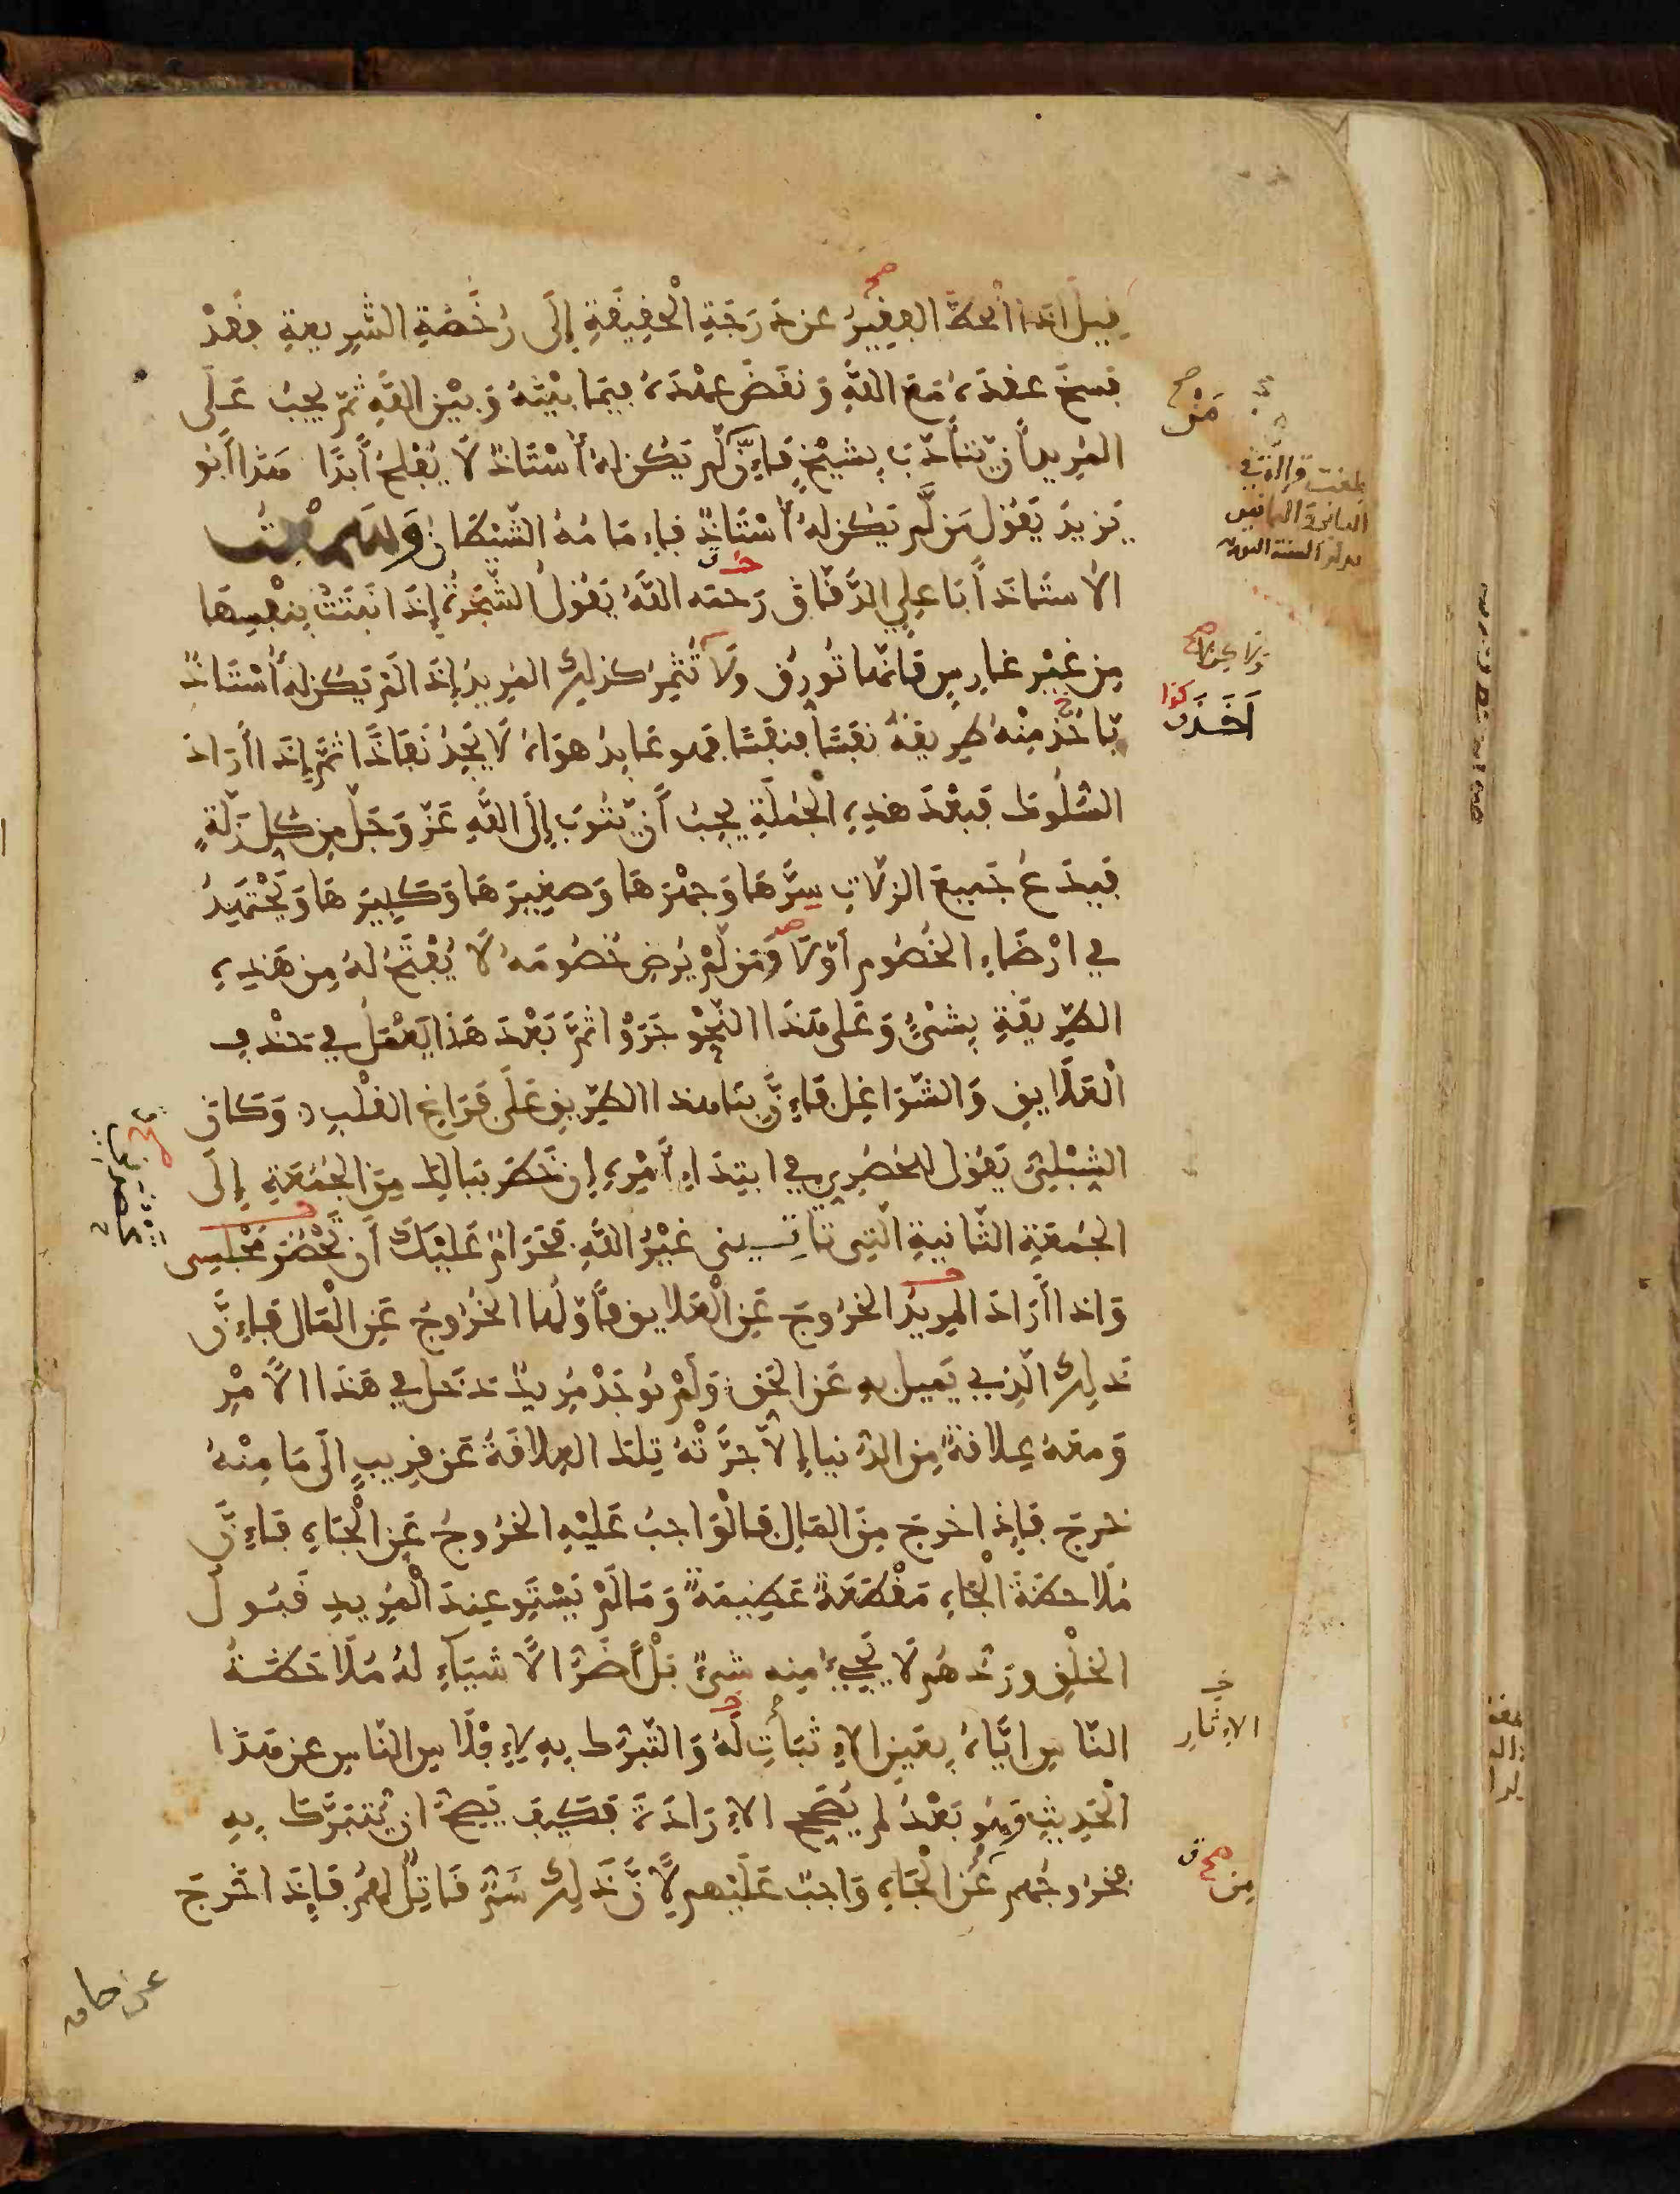 قِيلَ إِذَا انْحَطَّ الفقِيرُ عَن دَرَجَةِ الْحَقِيقَةِ إِلَى رُخْصَةِ الشَّرِيعَةِ فَقَدْ
فسخَ عقدَهُ مَعَ اللَّهِ وَنقَضَ عهْدَهُ فِيمَا بَيْنَهُ وَبَيْنَ اللَّهِ ثمّ يجبُ عَلَى
المُرِيدِ أَن يّتأَدَّبَ بِشيْخٍ فَإِن لَّم يَكُن لهُ أُسْتَاذٌ لَا يُفْلِحُ أَبَدًا هَذَا أَبُو
يَزِيدَ يَقُولُ مَن لَّم يَكُن لهُ أُسْتَاذٌ فإمَامُهُ الشَّيْطَانُ وَسَمِعْتُ
الأستَاذَ أَبَا عَلِيٍّ الدَّقَّاقَ رَحمَه اللَّهُ يَقُولُ الشَّجَرَةُ إِذَا نَبَتَتْ بِنفْسِهَا
مِن غَيْرِ غارِسٍ فَإِنَّهَا تُورِقُ وَلَا تُثْمِرُ كذلِكَ المُرِيدُ إِذَا لَمْ يَكُن لهُ أُسْتَاذٌ
يَّأخُذُ مِنْهُ طرِيقَهُ نفَسًا فنفَسًا فهو عَابِدُ هوَاهُ لَا يَجِدُ نَفَاذًا ثمَّ إِذَا أَرَادَ
السُّلُوكَ فَبعْدَ هذِهِ الْجُمْلَةِ يَجِبُ أَن يَّتُوبَ إِلَى اللَّهِ عَزَّ وَجَلَّ مِن كُلِّ زَلَّةٍ
فَيدَعُ جَمِيعَ الزلَّاتِ سِرَّهَا وَجهْرَهَا وَصغِيرَهَا وَكَبِيرَهَا وَيَجْتَهِدُ
فِي ارْضَاءِ الخُصُومِ أوَّلًا وَمَن لَّمْ يُرْضِ خُصُومَهُ لَا يُفْتَحُ لهُ مِن هَذِهِ
الطَّرِيقَةِ بِشَيْءٍ وَعَلى هَذَا النَّحْوِ جَرَوْا ثمَّ بَعْدَ هَذَا يَعْمَلُ فِي حَذْفِ
الْعَلَايِقِ وَالشَّوَاغِلِ فَإِنَّ بنَا هذا الطَّرِيقِ عَلَى فَرَاغِ القَلْبِ وَكَانَ
الشِّبْلِيُّ يَقُولُ للحُصْرِيِّ فِي ابتِدَاءِ أَمْرِهِ إِن خَطَرَ ببَالِكَ مِنَ الجُمُعَةِ إِلَى
الجُمُعَةِ الثَّانِيةِ الَّتِي تَأتِينِي غَيْرُ اللَّهِ فحَرَامٌ عَلَيْكَ أَن تَحْضُرَ مَجْلِسِي
وَإِذَا أَرَادَ المُرِيدُ الخُرُوجَ عَنِ الْعَلَايِقِ فَأَوَّلُهَا الخُرُوجُ عَنِ الْمَالِ فَإِنَّ
ذَلِكَ الَّذِي يَمِيلُ بِهِ عَنِ الحَقِّ وَلَمْ يُوجَدْ مُرِيدٌ دَخَلَ فِي هَذَا الأَمْرِ
وَمعَهُ عِلَاقَةٌ مِنَ الدُّنيا إِلَّا جَرَّتْهُ تِلكَ العِلَاقَةُ عَن قرِيبٍ الَى مَا مِنْهُ
خرجَ فَإِذَا خرجَ مِنَ المَالِ فَالْوَاجِبُ عَلَيْهِ الخُرُوجُ عَنِ الْجَاهِ فَإِنَّ
مُلَاحظَةَ الْجَاهِ مَقْطَعَةٌ عَظِيمَةٌ وَمَا لَمْ يَسْتَوِ عِندَ الْمُرِيدِ قَبُولُ
الخَلْقِ وردُّهُم لَا يَجِيءُ مِنه شَيْءٌ بَلْ أَضَرُّ الأَشيَاءِ لهُ مُلَاحَظَةُ
النَّاسِ إِيَّاهُ بِعَيْنِ الإِثبَاتِ لَهُ وَالتَّبَرُّكِ بِهِ لإِفْلَاسِ النَّاسِ عَن هَذَا
الْحَدِيثِ وَهُوَ بَعْدُ لم يُصَحِّحِ الإِرَادَةَ فَكَيْفَ يَصِحُّ ان يُّتَبَرَّكَ بِهِ
فخرُوجُهم عَنِ الْجَاهِ وَاجِبٌ عَلَيْهِم لِأَنَّ ذَلِكَ سَمٌّ قَاتِلٌ لهُمْ فَإِذَا خَرَجَ
مَنْ صح
كذا
أَخَذَ
خ
الإِيثَارِ
مِن صح
عن مال